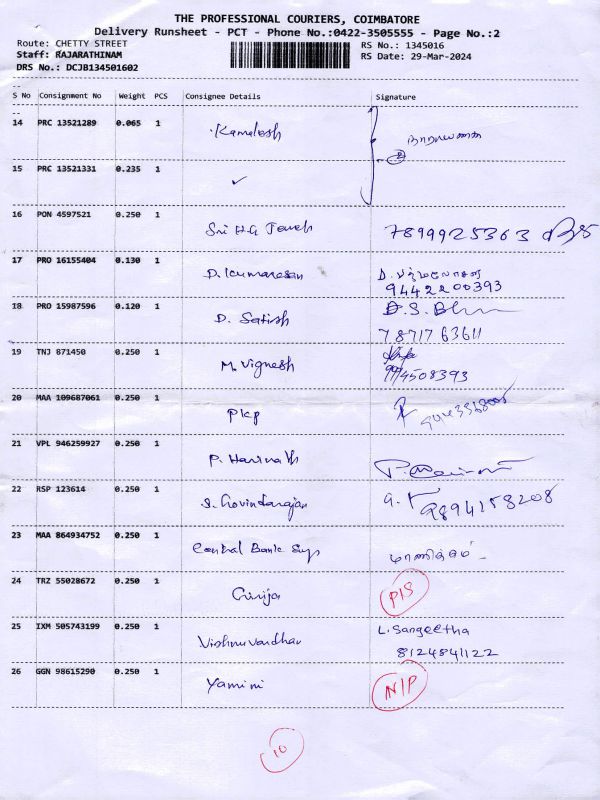 THE PROFESSIONAL COURIERS, COIMBATORE
Delivery Runsheet - PCT - Phone No.:0422-3505555 - Page No.:2
Route: CHETTY STREET RS No.: 1345016
Staff: RAJARATHINAM RS Date: 29-Mar-2024
DRS No.: DCJB134501602
--
S No Consignment No Weight PCS Consignee Details Signature
--
14 PRC 13521289 0.065 1 Kamalesh
15 PRC 13521331 0.235 1 ✓
16 PON 4597521 0.250 1 Sri H.G 7899925363
17 PRO 16155404 0.130 1 D. Kumaresan D.
9442200393
18 PRO 15987596 0.120 1 D. Satish D.S.
7871763611
19 TNJ 871450 0.250 1 M. Vignesh
20 MAA 109687061 0.250 1 PKP
21 VPL 946259927 0.250 1 P. Harinath
22 RSP 123614 0.250 1 S. Govindarajan 9894158208
23 MAA 864934752 0.250 1 Central Bank Sup
24 TRZ 55028672 0.250 1 Girija P/S
25 IXM 505743199 0.250 1 Vishnuvardhan L. Sangeetha
8124841122
26 GGN 98615290 0.250 1 Yamini N/P
10